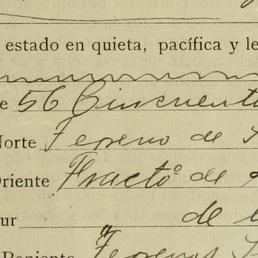 estado en quieta, pacífica y le
e 56 Cincuenta
Norte Terreno de
Oriente Fracto° de
ur de
Poniente Terrenos